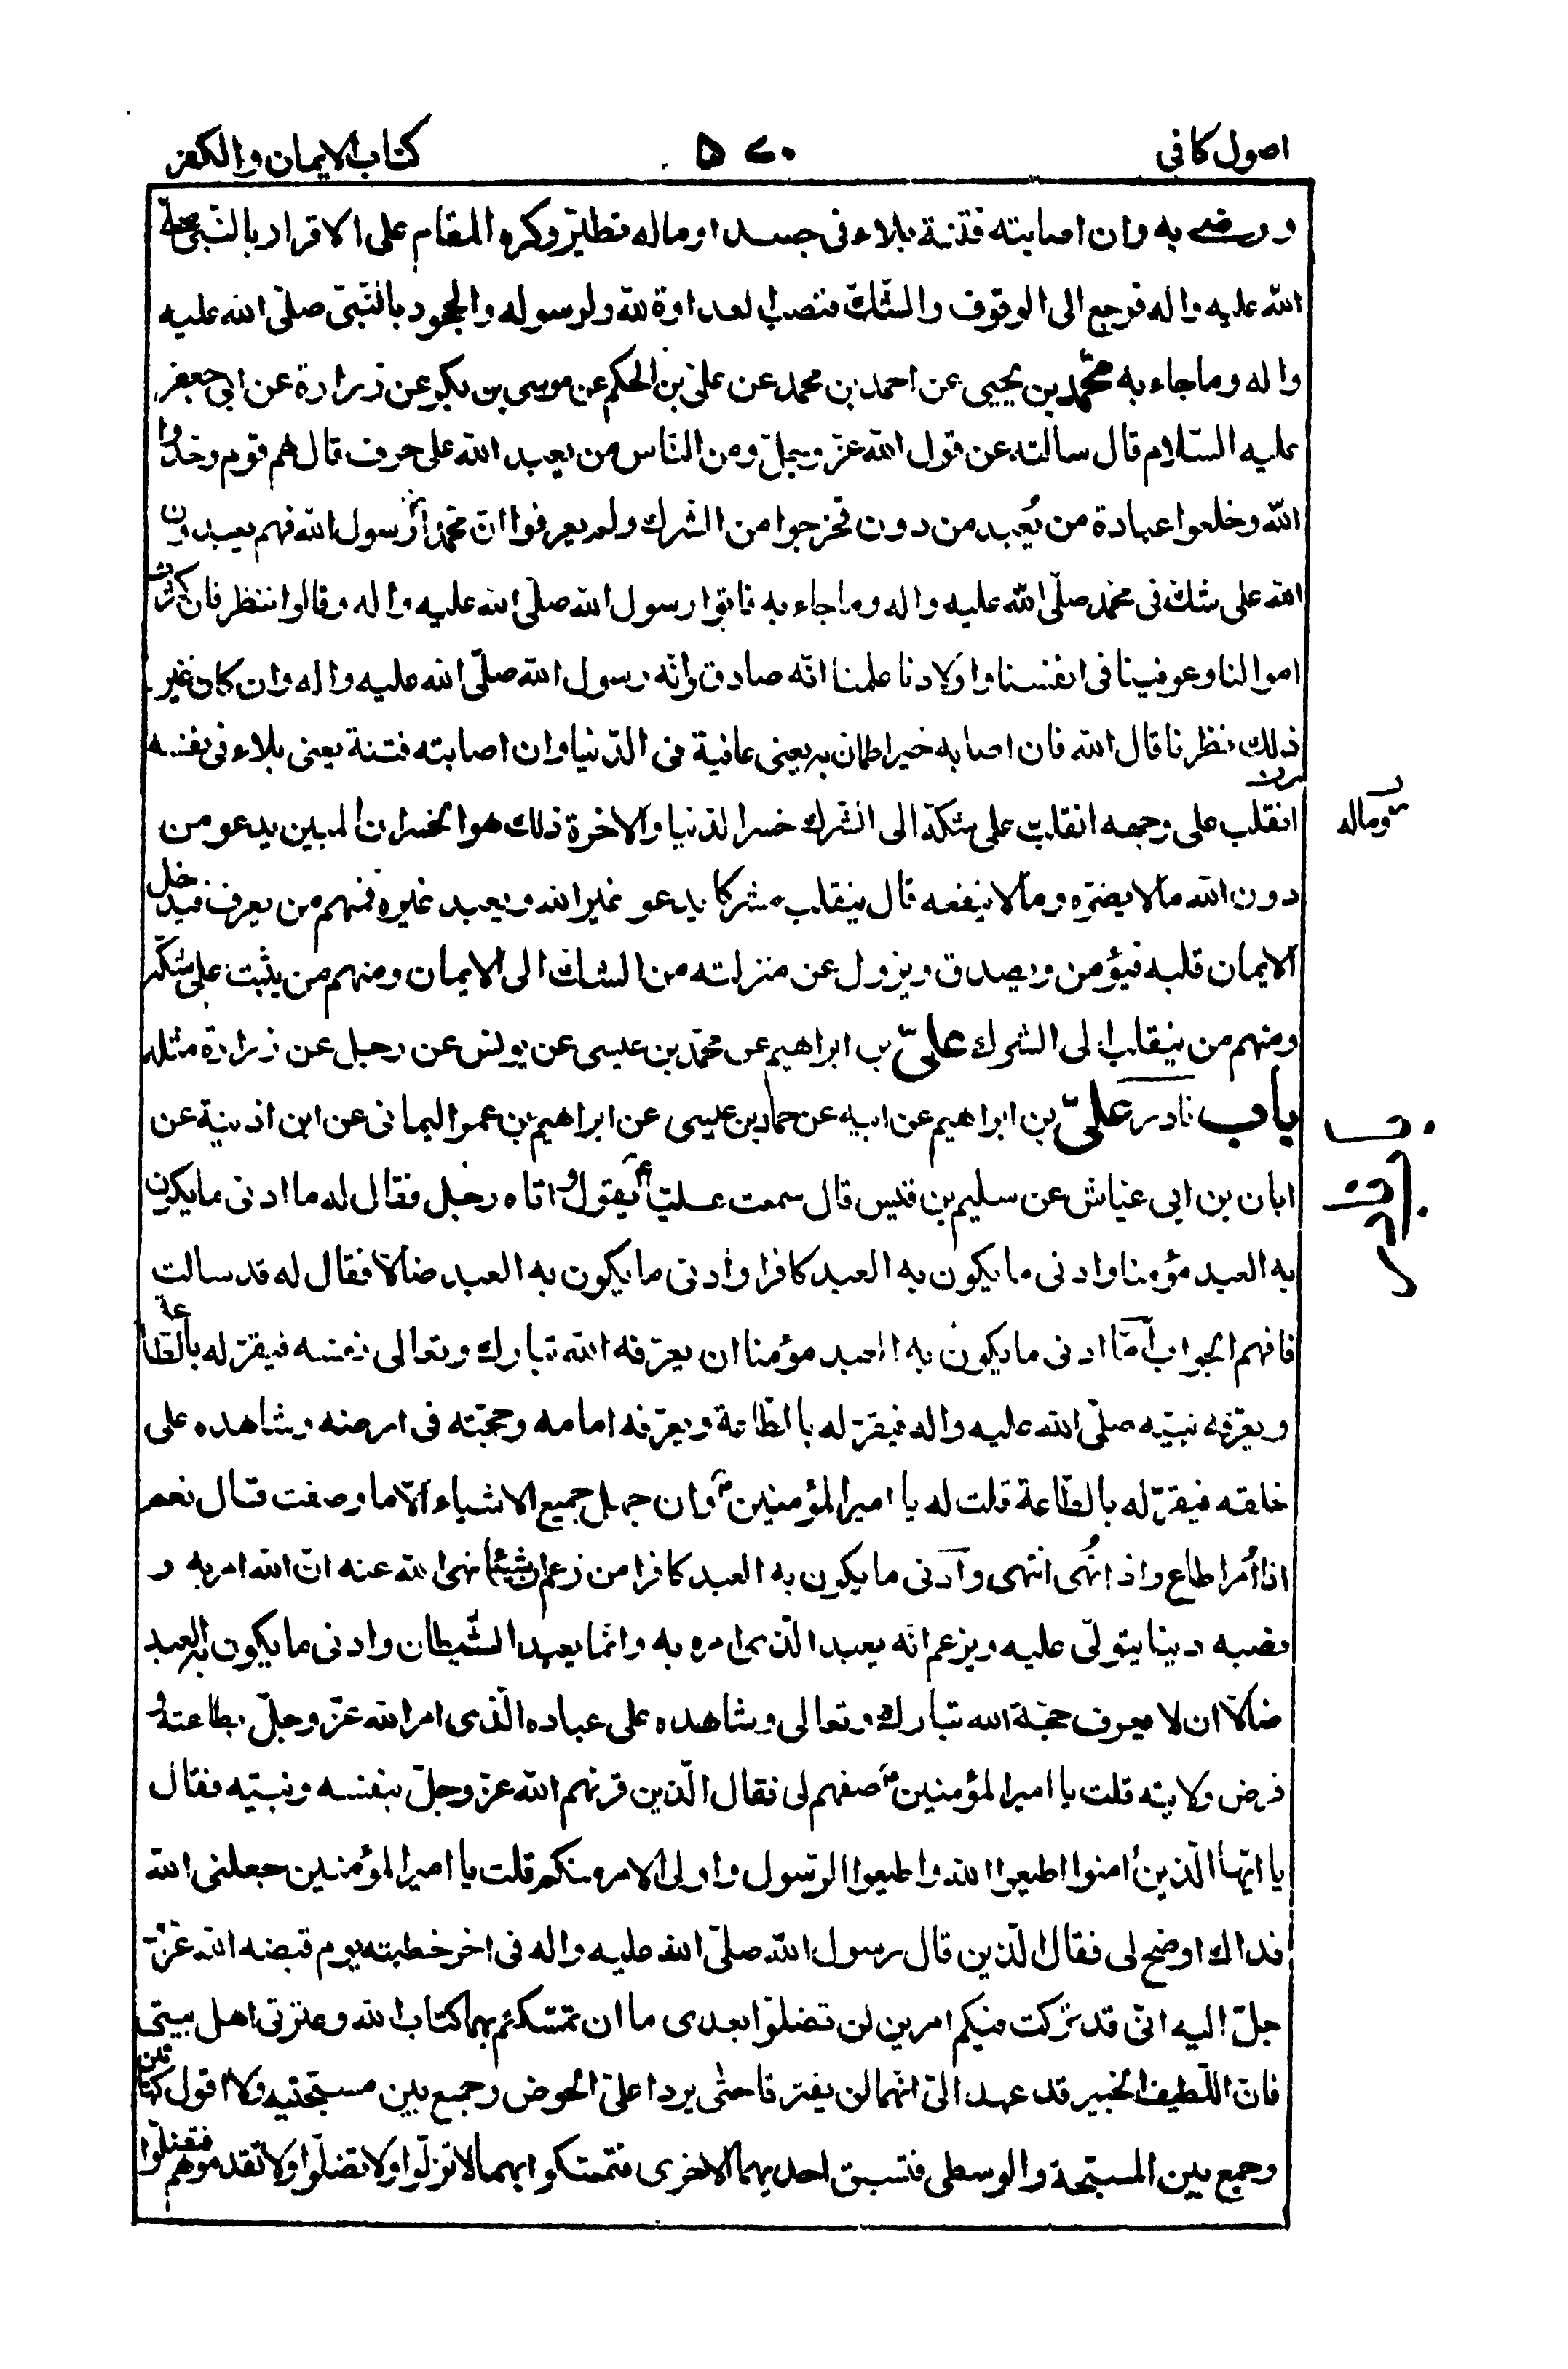 اصول كافى
٥٧٠
كتاب الايمان والكفر
ورضى به وان اصابته فتنة بلاء فى جسده او ماله فتطيّر وكره المقام على الاقرار بالنّبى صلّى
اللّه عليه واله فرجع الى الوقوف والشّك فنصب العداوة للّه ولرسوله والجحود بالنّبىّ صلّى اللّه عليه
واله وما جاء به محمّد بن يحيى عن احمد بن محمد عن علىّ بن الحكم عن موسى بن بكر عن زرارة عن ابى جعفر
عليه السّلام قال سالته عن قول اللّه عزّ وجلّ ومن النّاس من يعبد اللّه على حرف قال هم قوم وحّدوا
اللّه وخلعوا عبادة من يُعبد من دون فخرجوا من الشّرك ولم يعرفوا انّ محمّدا رسول اللّه فهم يعبدون
اللّه على شك فى محمّد صلّى اللّه عليه واله وما جاء به فاتوا رسول اللّه صلّى اللّه عليه واله وقالوا ننظر فان كثرت
اموالنا وعوفينا فى انفسنا واولادنا علمنا انّه صادق وانّه رسول اللّه صلّى اللّه عليه واله وان كان غير
ذلك نظرنا قال اللّه فان اصابه خير اطمان به يعنى عافية فى الدّنيا وان اصابته فتنة يعنى بلاء فى نفسه
وماله
انقلب على وجهه انقلب على شكّه الى الشّرك خسر الدّنيا والاخرة ذلك هو الخسران المبين يدعو من
دون اللّه ما لا يضرّه وما لا ينفعه قال ينقلب مشركا يدعو غير اللّه ويعبد غيره فمنهم من يعرف فيدخل
الايمان قلبه فيؤمن ويصدق ويزول عن منزلته من الشّك الى الايمان ومنهم من يثبت على شكّه
ومنهم من ينقلب الى الشرك علىّ بن ابراهيم عن محمّد بن عيسى عن يونس عن رجل عن زرارة مثله
باب نادر علىّ بن ابراهيم عن ابيه عن حماد بن عيسى عن ابراهيم بن عمر اليمانى عن ابن اذينة عن
ابان بن ابى عيّاش عن سليم بن قيس قال سمعت عليّا يقول واتاه رجل فقال له ما ادنى ما يكون
به العبد مؤمنا وادنى ما يكون به العبد كافرا وادنى ما يكون به العبد ضالّا فقال له قد سالت
فافهم الجواب امّا ادنى ما يكون به العبد مؤمنا ان يعرّفه اللّه تبارك وتعالى نفسه فيقرّ له بالطّاعة
ويعرّفه نبيّه صلّى اللّه عليه واله فيقرّ له بالطّاعة ويعرّفه امامه وحجّته فى ارضه وشاهده على
خلقه فيقرّ له بالطّاعة قلت له يا امير المؤمنين وان جهل جميع الاشياء الّا ما وصفت قال نعم
اذا اُمر اطاع واذا نُهى انتهى وادنى ما يكون به العبد كافرا من زعم ان شيئا نهى اللّه عنه انّ اللّه امر به و
نصبه دينا يتولّى عليه ويزعم انّه يعبد الّذى امره به وانّما يعبد الشّيطان وادنى ما يكون به العبد
ضالّا ان لا يعرف حجّة اللّه تبارك وتعالى وشاهده على عباده الّذى امر اللّه عزّ وجلّ بطاعته و
فرض ولايته قلت يا امير المؤمنين صفهم لى فقال الّذين قرنهم اللّه عزّ وجلّ بنفسه ونبيّه فقال
يا ايّها الّذين امنوا اطيعوا اللّه واطيعوا الرّسول واولى الامر منكم قلت يا امير المؤمنين جعلنى اللّه
فداك اوضح لى فقال الّذين قال رسول اللّه صلّى اللّه عليه واله فى اخر خطبته يوم قبضه اللّه عزّ و
جلّ اليه انّى قد تركت فيكم امرين لن تضلّوا بعدى ما ان تمسّكتم بهما كتاب اللّه وعترتى اهل بيتى
فانّ اللّطيف الخبير قد عهد الىّ انّهما لن يفترقا حتّى يردا علىّ الحوض وجمع بين مسبّحتيه ولا اقول كهاتين
وجمع بين المسبّحة والوسطى فتسبق احديهما الاخرى فتمسّكوا بهما لا تزلّوا ولا تضلّوا ولا تقدموهم فتضلّوا